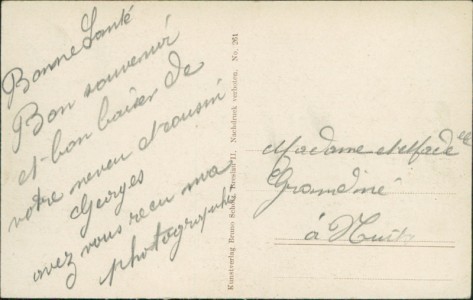 Bonne Santé
Bon souvenir
et bon baiser de
votre neveu et cousin
Georges
avez vous reçu ma
photographie
Kunstverlag Bruno Nachdruck verboten. No. 261
Madame et Made
à Nuits